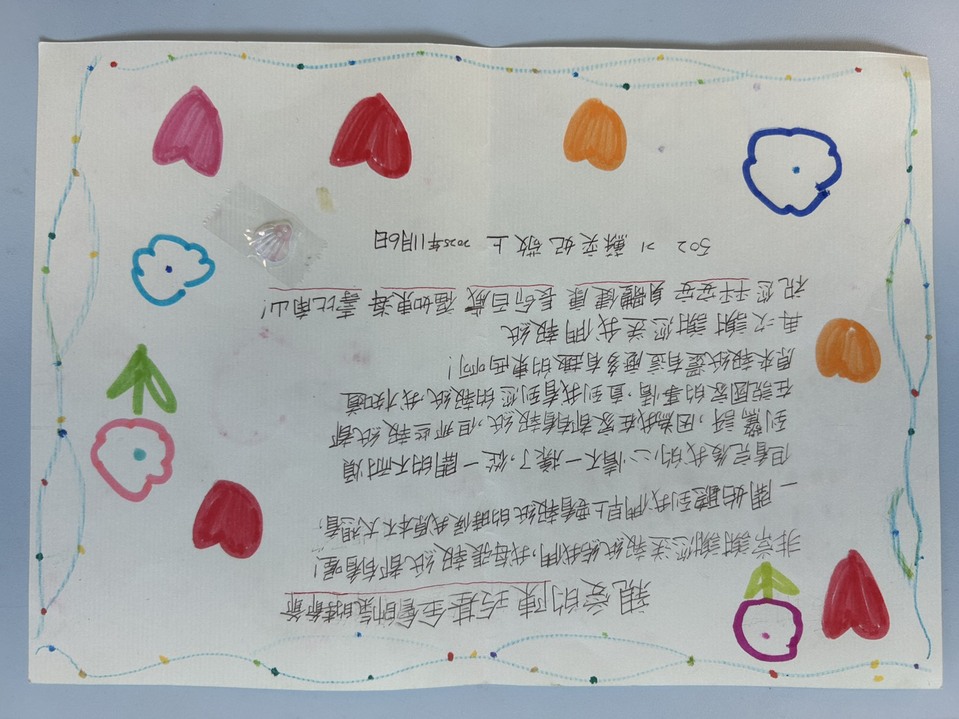 親愛的陳玲基金會的吳時奇爺爺
非常謝謝您送報紙給我們,我每張報紙都有看喔!
一開始聽到我們早上要看報紙的時候我原本不太想看,
但看完後我的心情不一樣了,從一開的不耐煩
到驚訝,因為我在家都有看報紙,但那些報紙都
在說國家的事情,直到我看到您的報紙我才知道
原來報紙還有這麼多有趣的東西啊!
再次謝謝您送我們報紙
祝您平平安安 身體健康 長命百歲 福如東海 壽比南山!
502 21 蘇奕妃 敬上 2025年11月6日